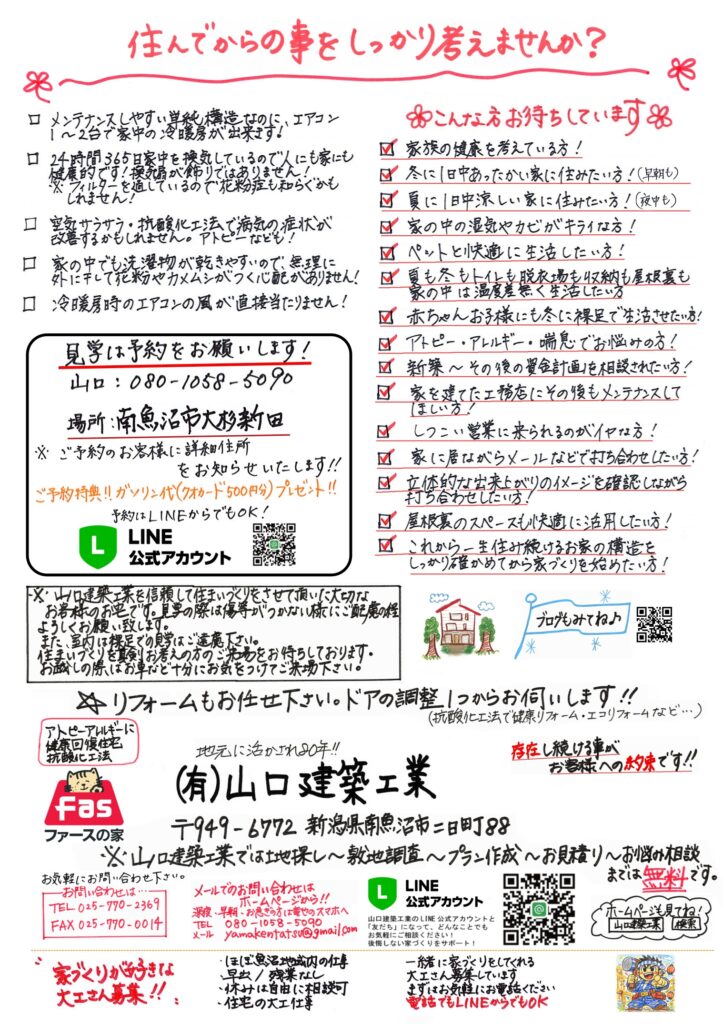 住んでからの事をしっかり考えませんか？
□ メンテナンスしやすい単純構造なのに、エアコン
1～2台で家中の冷暖房が出来ます！
□ 24時間365日家中を換気しているので人にも家にも
健康的です！換気扇が飾りではありません！
※フィルターを通しているので花粉症も知らぐかも
しれません！
□ 空気サラサラ・抗酸化工法で病気の症状が
改善するかもしれません。アトピーなども！
□ 家の中でも洗濯物が乾きやすいので、無理に
外に干して花粉やカメムシがつく心配がありません！
□ 冷暖房時のエアコンの風が直接当たりません！
見学は予約をお願いします！
山口：080-1058-5090
場所：南魚沼市大杉新田
※ ご予約のお客様に詳細住所
をお知らせいたします！！
ご予約特典！！ガソリン代（クオカード500円分）プレゼント！！
予約はLINEからでもOK！
L
LINE
公式アカウント
こんな方お待ちしています
家族の健康を考えている方！
冬に1日中あったかい家に住みたい方！（早朝も）
夏に1日中涼しい家に住みたい方！（夜中も）
家の中の湿気やカビがキライな方！
ペットと快適に生活したい方！
夏も冬もトイレも脱衣場も収納も屋根裏も
家の中は温度差無く生活したい方
赤ちゃんお子様にも冬に裸足で生活させたい方！
アトピー・アレルギー・喘息でお悩みの方！
新築～その後の資金計画を相談されたい方！
家を建てた工務店にその後もメンテナンスして
ほしい方！
しつこい営業に来られるのがイヤな方！
家に居ながらメールなどで打ち合わせしたい方！
立体的な出来上がりのイメージを確認しながら
打ち合わせしたい方！
屋根裏のスペースも快適に活用したい方！
これから一生住み続けるお家の構造を
しっかり確かめてから家づくりを始めたい方！
※ 山口建築工業を信頼して住まいづくりをさせて頂いた大切な
お客様のお宅です。見学の際は傷等がつかない様にご配慮の程
ようしくお願い致します。
また、室内は裸足での見学はご遠慮下さい。
住まいづくりを真剣にお考えの方のご来場をお待ちしております。
お越しの際、はお車など十分にお気をつけてご来場下さい。
ブログもみてね♪
☆リフォームもお任せ下さい。ドアの調整1つからお伺いします！！
（抗酸化工法で健康リフォーム・エコリフォームなど…）
アトピーアレルギーに
健康回復住宅
抗酸化工法
Fas
ファースの家
地元に活かされ20年！！
（有）山口建築工業
存在し続ける事が
お客様への約束です！！
〒949-6772 新潟県南魚沼市二日町88
※山口建築工業では土地探し～敷地調査～プラン作成～お見積り～お悩み相談
までは無料です。
お気軽にお問い合わせ下さい。
お問い合わせは…
TEL 025-770-2369
FAX 025-770-0014
メールでのお問い合わせは
ホームページから！！
深夜・早朝・お急ぎの方は電せのスマホへ
TEL 080-1058-5090
メール yamakentatsu@gmail.com
L
LINE
公式アカウント
山口建築工業のLINE公式アカウントと
「友だち」になって、どんなことでも
お気軽にご相談ください！
後悔しない家づくりをサポート！
ホームページも見てね！
山口建築工業 検索
家づくりが好きな
大工さん募集！！
・ほぼ魚沼地域内の仕事
・早出/残業なし
・休みは自由に相談可
・住宅の大工仕事
一緒に家づくりをしてくれる
大工さん募集しています
まずはお気軽にお電話ください
電話でもLINEからでもOK